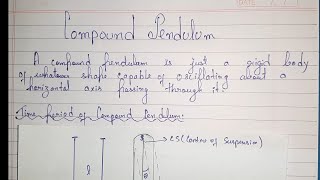 Compound Pendulum
A compound pendulum is just a rigid body
of whatever shape capable of oscillating about a
horizontal axis passing through it.
Time period of Compound Pendulum:
CS (Centre of Suspension)
l